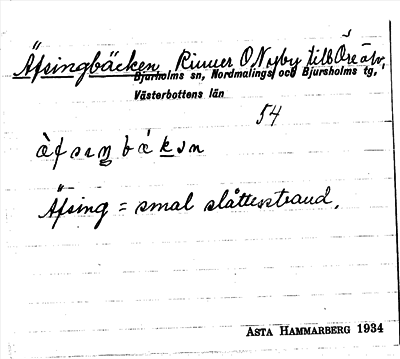 Äfsingbäcken, Rinner O Nyby till Öre älv,
Bjurholms sn, Nordmalings och Bjursholms tg,
Västerbottens län
54
Äfsing = smal slåtterstrand.
ASTA HAMMARBERG 1934